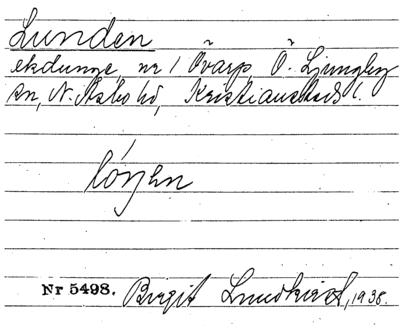 Lunden
ekdunge, nr 1 Övarp, Ö. Ljungby
sn, N. Åsbo hd, Kristianstads l.
Nr 5498. Birgit Lundkvist, 1938.